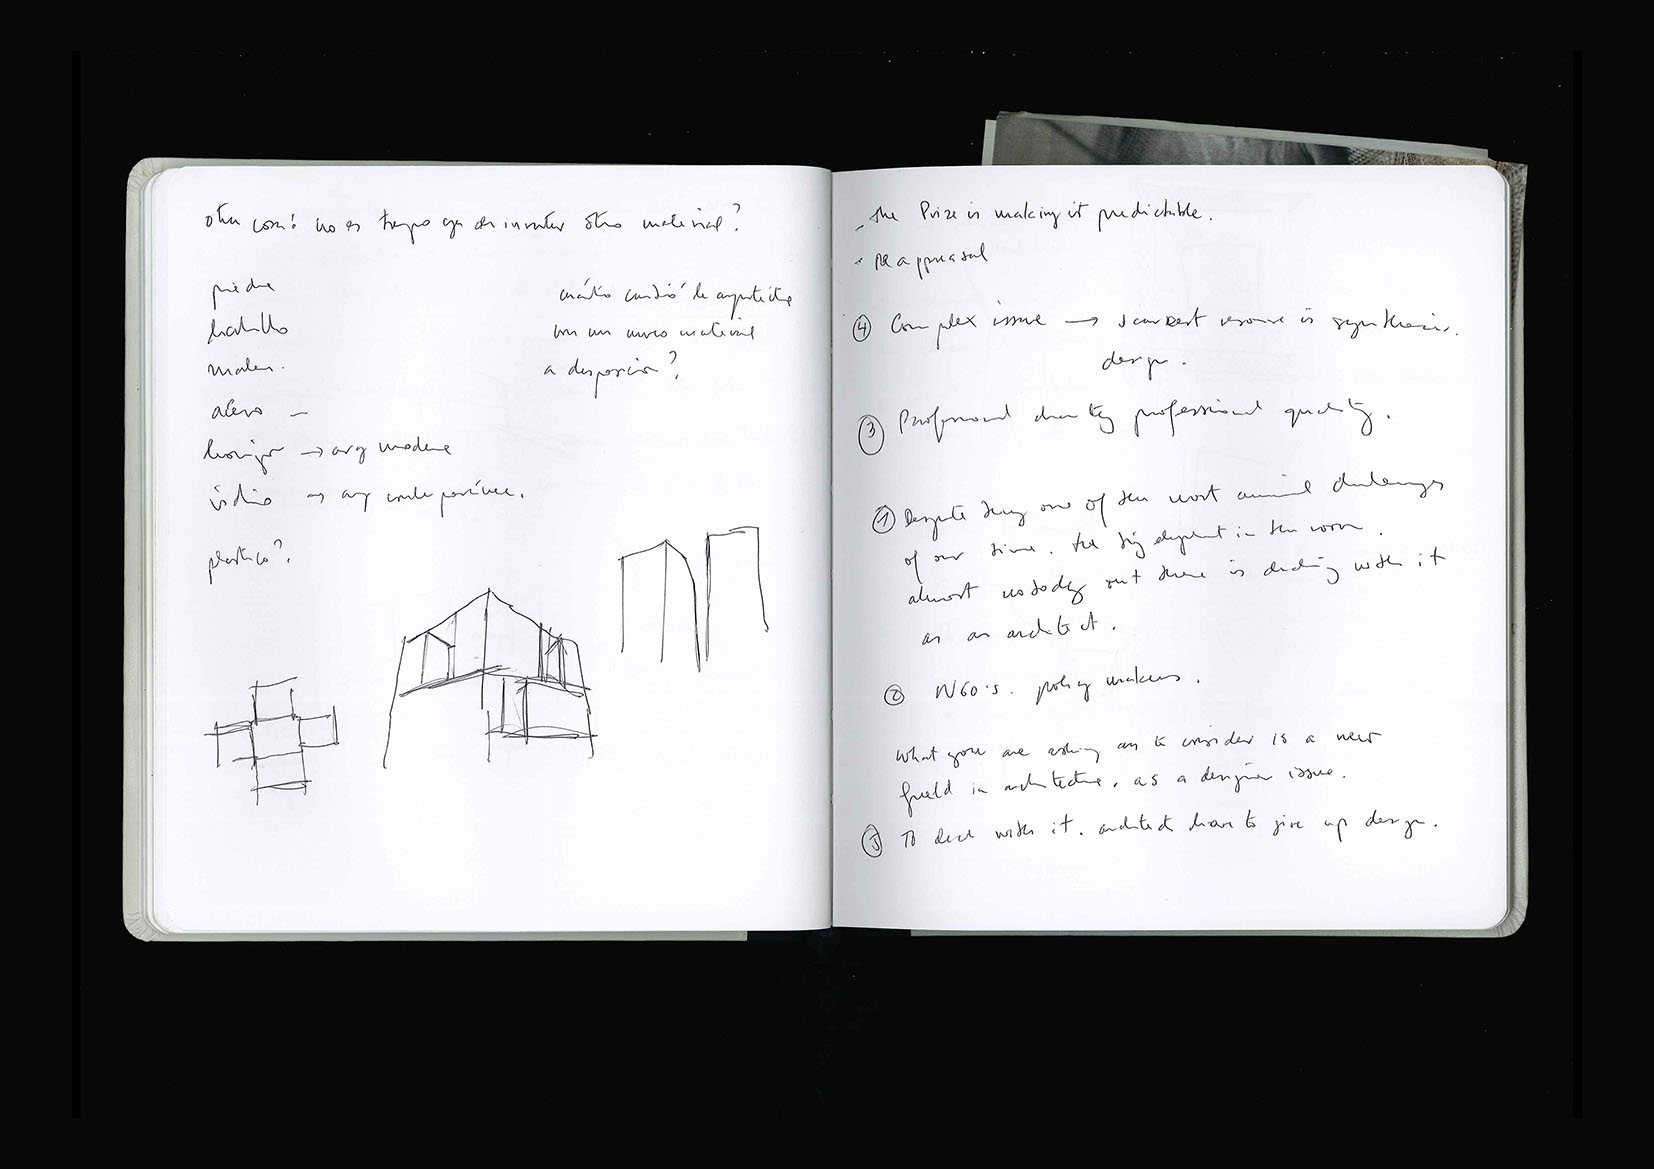 otra cosa: no es tiempo ya de inventar otro material?
piedra
ladrillo
madera.
acero –
hormigon → arq moderna
vidrio → arq contemporánea.
plastico?
cuánto cambió la arquitectura
con un nuevo material
a disposición?
- the Prize is making it predictable.
- Reappraisal
④ Complex issue → scarcest resource is synthesis.
design.
③ Professional charity professional quality.
① Despite being one of the most challenges
of our time. the big elephant in the room.
almost nobody out there is dealing with it
as an architect.
② NGO's. policy makers.
What you are asking us to consider is a new
field in architecture, as a design issue.
To deal with it. architects have to give up design.